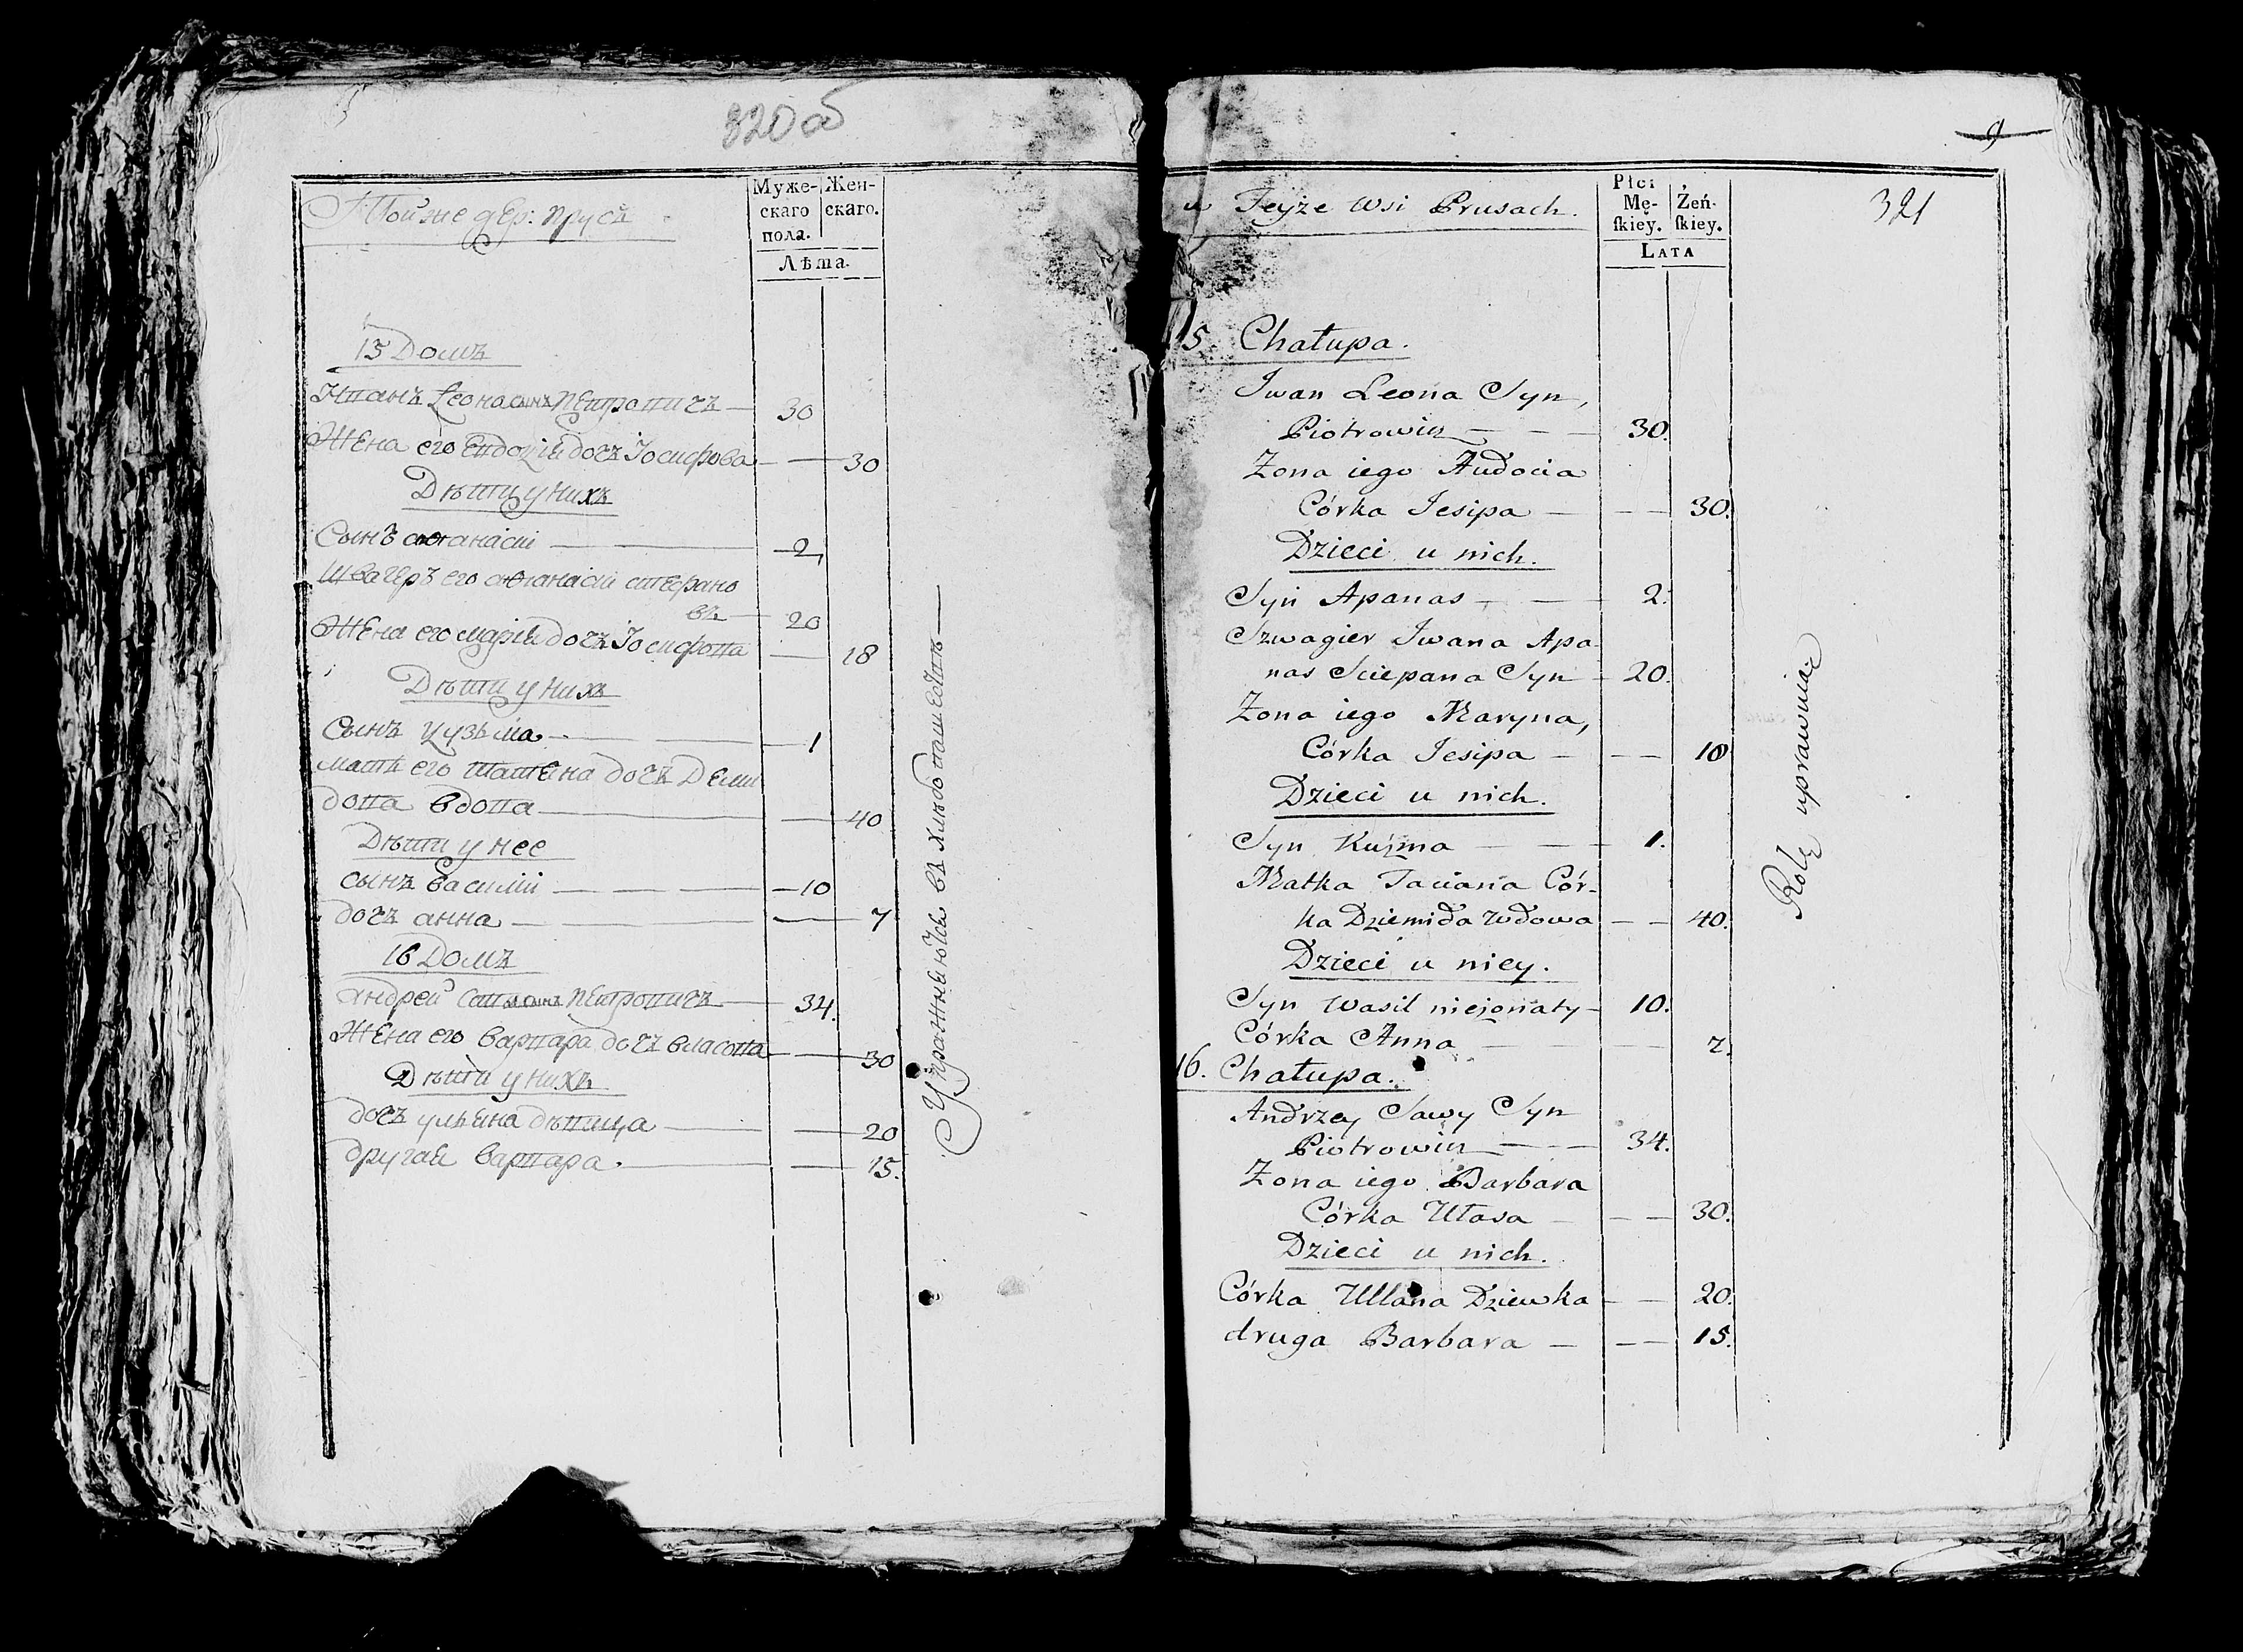 820 об
Тойже дер: прусъ
Муже-
скаго
пола.
Жен-
скаго.
Лѣта.
15 Домъ
Иванъ Леона сынъ Петровичъ — 30
Жена его Евдокія дочъ Іосифова — 30
Дѣти у нихъ
Сынъ аѳанасій — 2
Швагеръ его аѳанасій стефано
въ — 20
Жена его марія дочъ Іосифова — 18
Дѣти у нихъ
Сынъ кузьма — 1
мать его татьяна дочъ Деми
дова вдова — 40
Дѣти у нее
сынъ василій — 10
дочъ анна — 7
16 Домъ
андрей савы сынъ Петровичъ — 34.
Жена его варвара дочъ власова — 30
Дѣти у нихъ
дочъ ульяна дѣвица — 20
другая варвара. — 15.
Упражняются въ хлѣбопашествѣ —
9
321
w Teyże Wsi Prusach.
Płci
Mę-
ſkiey.
Żeń-
ſkiey.
LATA
15 Chałupa.
Iwan Leona Syn,
Piotrowicz — — — 30.
Zona iego Audocia
Córka Jesipa — — — 30.
Dzieci u nich.
Syn Apanas — — 2.
Szwagier Iwana Apa
nas Sciepana Syn — 20.
Zona iego Maryna,
Córka Jesipa — — — 18
Dzieci u nich.
Syn Kuźma — — — 1.
Matka Taciana Cór-
ka Dziemida wdowa — — 40.
Dzieci u niey.
Syn Wasil nieżonaty — 10.
Córka Anna — — 7.
16. Chałupa.
Andrzey Sawy Syn
Piotrowicz — — — 34.
Zona iego Barbara
Córka Ułasa — — — 30.
Dzieci u nich.
Córka Ullana Dziewka — — 20.
druga Barbara — — — 15.
Rolę uprawuią